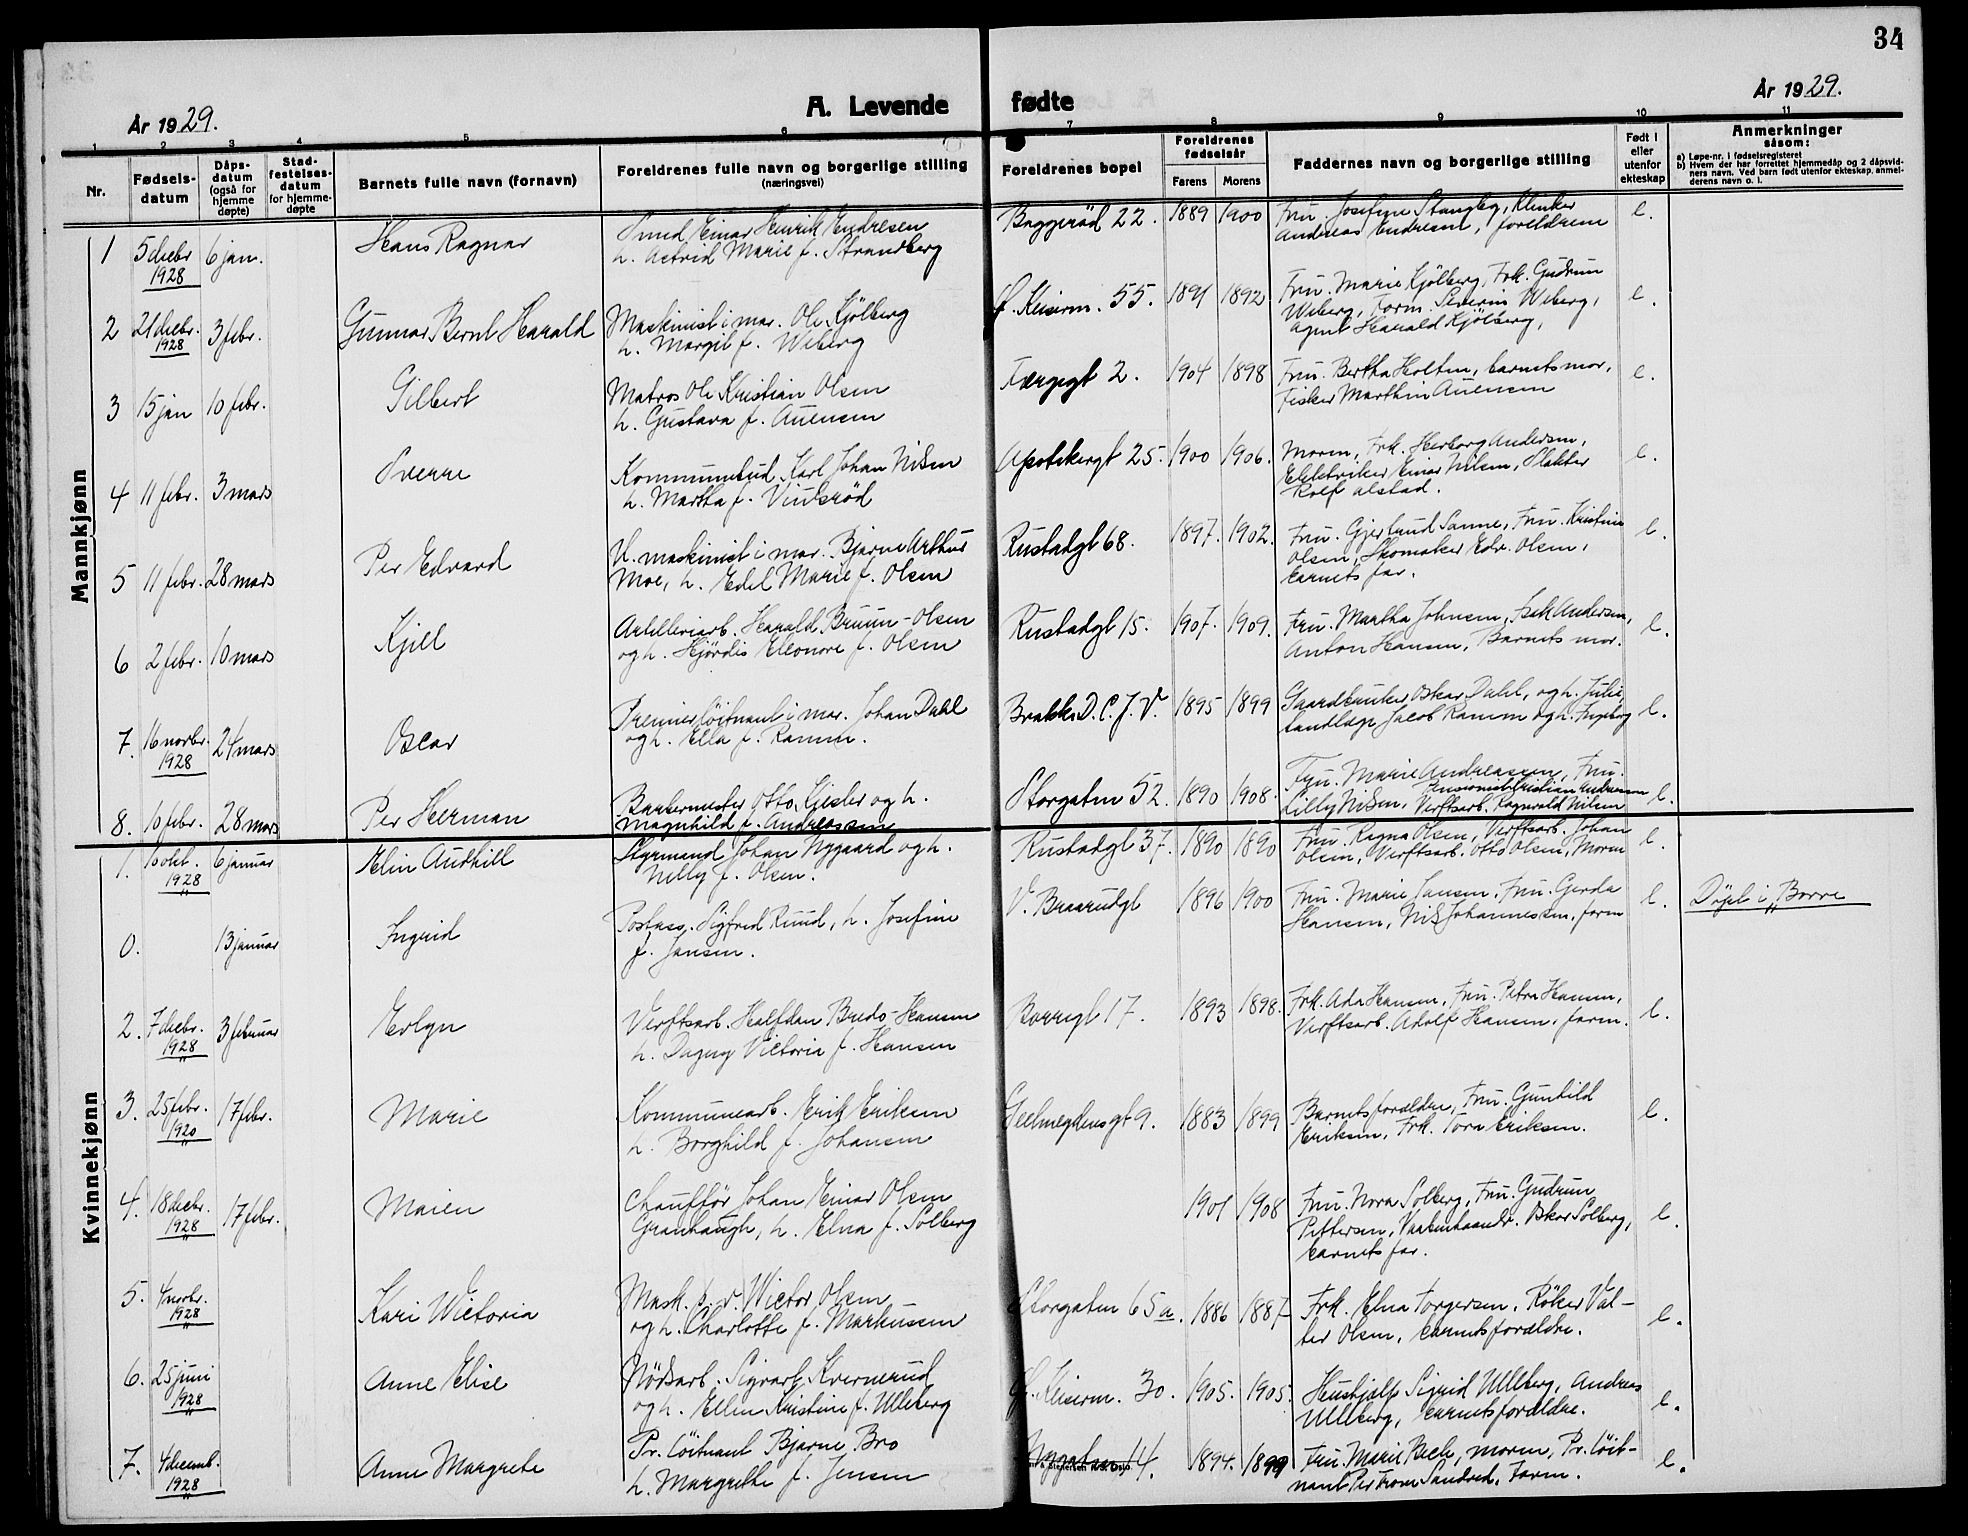 34
År 1929.
A. Levende fødte
År 1929.
1 2 3 4 5 6 7 8 9 10 11
Nr.
Fødsels-
datum
Dåps-
datum
(også for
hjemme
døpte)
Stad-
festelses-
datum
for hjemme-
døpte
Barnets fulle navn (fornavn)
Foreldrenes fulle navn og borgerlige stilling
(næringsvei)
Foreldrenes bopel
Foreldrenes
fødselsår
Farens Morens
Faddernes navn og borgerlige stilling
Født i
eller
utenfor
ekteskap
Anmerkninger
såsom:
a) Løpe-nr. i fødselsregisteret
b) Hvem der har forrettet hjemmedåp og 2 dåpsvid-
ners navn. Ved barn født utenfor ekteskap, anmel-
derens navn o. l.
Mannkjønn
1 5 decbr 1928 6 jan. Hans Ragnar
Smed Einar Henrik Endresen
h. Astrid Marie f. Strandberg
Baggerød 22. 1889 1900
Fru. Josefine Stangeby, Klinker
Andreas Endresen, foreldrene
e.
2 21 decbr. 1928 3 febr. Gunnar Bernt Harald
Maskinist i mar. Ole Kjölberg
h. Margit f. Wiberg
Keiserm. 55. 1891 1892
Fru. Marie Kjölberg, Frk. Gudrun
Wiberg, Form. Severin Wiberg,
agent Harald Kjölberg,
e.
3 15 jan 10 febr. Gilbert
Matros Ole Kristian Olsen
h. Gustava f. Auensen
Færgegt 2. 1904 1898
Fru. Bertha Holten, barnets mor,
Fisker Marthin Auensen
e.
4 11 febr. 3 mars Sverre
Kommunebud Karl Johan Nilsen
h. Martha f. Vindsrød
Apotekergt 25. 1900 1906.
Moren, Frk. Herborg Andersen,
Elektriker Einar Nilsen, Slakter
Rolf Alstad.
e.
5 11 febr. 28 mars Per Edvard
U. maskinist i mar. Bjarne Arthur
Moe, h. Edel Marie f. Olsen
Rustadgt 68. 1897. 1902.
Fru. Gjertrud Sanne, Fru. Kristine
Olsen, Skomaker Edv. Olsen,
barnets far.
e.
6 2 febr. 10 mars Kjell
Artilleriarb. Harald Bruun-Olsen
og h. Hjördis Eleonore f. Olsen
Rustadgt 15. 1907. 1909.
Fru. Martha Johnsen, Isak Andersen,
Anton Hansen, Barnets mor.
e.
7. 16 novbr. 1928 24 mars Oscar
Premierlöitnant i mar. Johan Dahl
og h. Ella f. Ramm.
Brakke D. C. J. V. 1895 1899
Gaardbruker Oskar Dahl, og h. Julie,
Landlæge Jacob Ramm og h. Ingeborg
e.
8. 10 febr. 28 mars Per Herman
Barbermester Otto Kjesler og h.
Magnhild f. Andreassen
Storgaten 52. 1890 1908.
Fru. Marie Andreassen, Fru.
Lilly Nilsen, Pensionist Kristian Andreassen
Verftsarb. Ragnvald Nilsen
e.
Kvinnekjønn
1. 10 okt. 1928 6 januar Elin Audhill
Styrmand Johan Nygaard og h.
Nelly f. Olsen.
Rustadgt 37. 1890 1890
Fru. Ragna Olsen, Verftsarb. Johan
Olsen, Verftsarb. Otto Olsen, Moren
e.
0. 13 januar Ingrid
Postass. Sigfred Ruud, h. Josefine
f. Jansen.
V. Braarudgt 1896 1900
Fru. Marie Jansen, Fru. Gerda
Hansen, Nils Johannessen, faren
e. Döpt i Borre
2. 7 decbr. 1928 3 februar Evlyn
Verftsarb. Halfdan Bredo-Hansen
h. Dagny Victoria f. Hansen
Borregt 17. 1893 1898.
Frk. Ada Hansen, Fru. Petra Hansen,
Verftsarb. Adolf Hansen, faren.
e.
3. 25 febr. 1920 17 febr. Marie
Kommunearb. Erik Eriksen
h. Borghild f. Johansen
Geelmeydensgt 9. 1883 1899
Barnets forældre, Fru. Gunhild
Eriksen, Frk. Tora Eriksen.
e.
4. 18 decbr. 1928 17 febr. Maien
Chauffør Johan Einar Olsen
Granhaugh, h. Elna f. Solberg
1901 1908
Fru. Nora Solberg, Fru. Gudrun
Pettersen, Oskar Solberg,
barnets far.
e.
5. 4 novbr. 1928 Kari Wictoria
Mask. Wictor Olsen
og h. Charlotte f. Markussen
Storgaten 65 a. 1886 1887
Frk. Elna Torgersen, Röker Val-
ter Olsen, barnets forældre.
e.
6. 25 juni 1928 Anne Elise
Nödsarb. Sigvart Kvernerud
og h. Ellen Kristine f. Ulleberg
Keiserm. 30. 1905. 1905.
Hushjælp Sigrid Ulleberg, Andreas
Ulleberg, barnets forældre.
e.
7. 4 decemb. 1928 Anne Margrete
Pr. löitnant Bjarne Bro
h. Margrethe f. Jensen
Nygaten 14. 1894. 1899
Fru. Marie Bech, moren, Pr. löit-
nant Per From Sandved, Faren.
e.